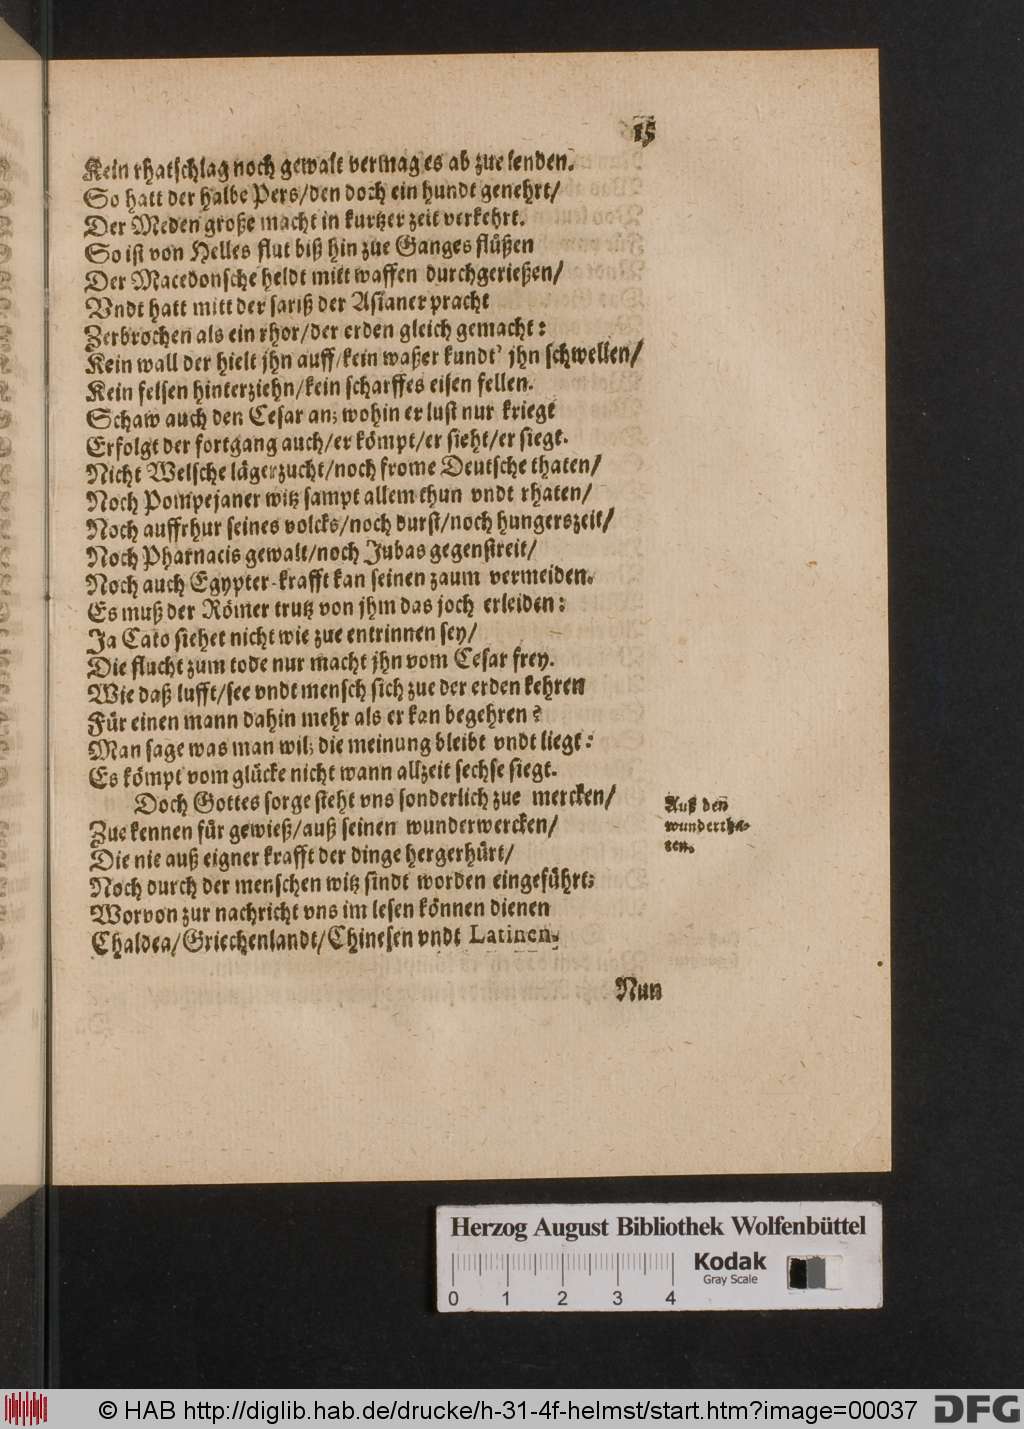 15
Kein rhatschlag noch gewalt vermag es ab zue lenden.
So hatt der halbe Pers/den doch ein hundt genehrt/
Der Meden große macht in kurtzer zeit verkehrt.
So ist von Helles flut biß hin zue Ganges flüßen
Der Macedonsche heldt mitt waffen durchgerießen/
Vndt hatt mitt der sariß der Asianer pracht
Zerbrochen als ein rhor/der erden gleich gemacht:
Kein wall der hielt jhn auff/kein waßer kundt' jhn schwellen/
Kein felsen hinterziehn/kein scharffes eisen fellen.
Schaw auch den Cesar an; wohin er lust nur kriegt
Erfolgt der fortgang auch/er kömpt/er sieht/er siegt.
Nicht Welsche lägerzucht/noch frome Deutsche thaten/
Noch Pompejaner witz sampt allem thun vndt rhaten/
Noch auffrhur seines volcks/noch durst/noch hungerszeit/
Noch Pharnacis gewalt/noch Jubas gegenstreit/
Noch auch Egypter-krafft kan seinen zaum vermeiden.
Es muß der Römer trutz von jhm das joch erleiden:
Ja Cato siehet nicht wie zue entrinnen sey/
Die flucht zum tode nur macht jhn vom Cesar frey.
Wie daß lufft/see vndt mensch sich zue der erden kehren
Für einen mann dahin mehr als er kan begehren?
Man sage was man wil; die meinung bleibt vndt liegt:
Es kömpt vom glücke nicht wann allzeit sechse siegt.
Doch Gottes sorge steht vns sonderlich zue mercken/
Zue kennen für gewieß/auß seinen wunderwercken/
Die nie auß eigner krafft der dinge hergerhürt/
Noch durch der menschen witz sindt worden eingeführt;
Worvon zur nachricht vns im lesen können dienen
Chaldea/Griechenlandt/Chinesen vndt Latinen.
Auß den
wundertha-
ten.
Nun
Herzog August Bibliothek Wolfenbüttel
Kodak
Gray Scale
0 1 2 3 4
© HAB http://diglib.hab.de/drucke/h-31-4f-helmst/start.htm?image=00037
DFG